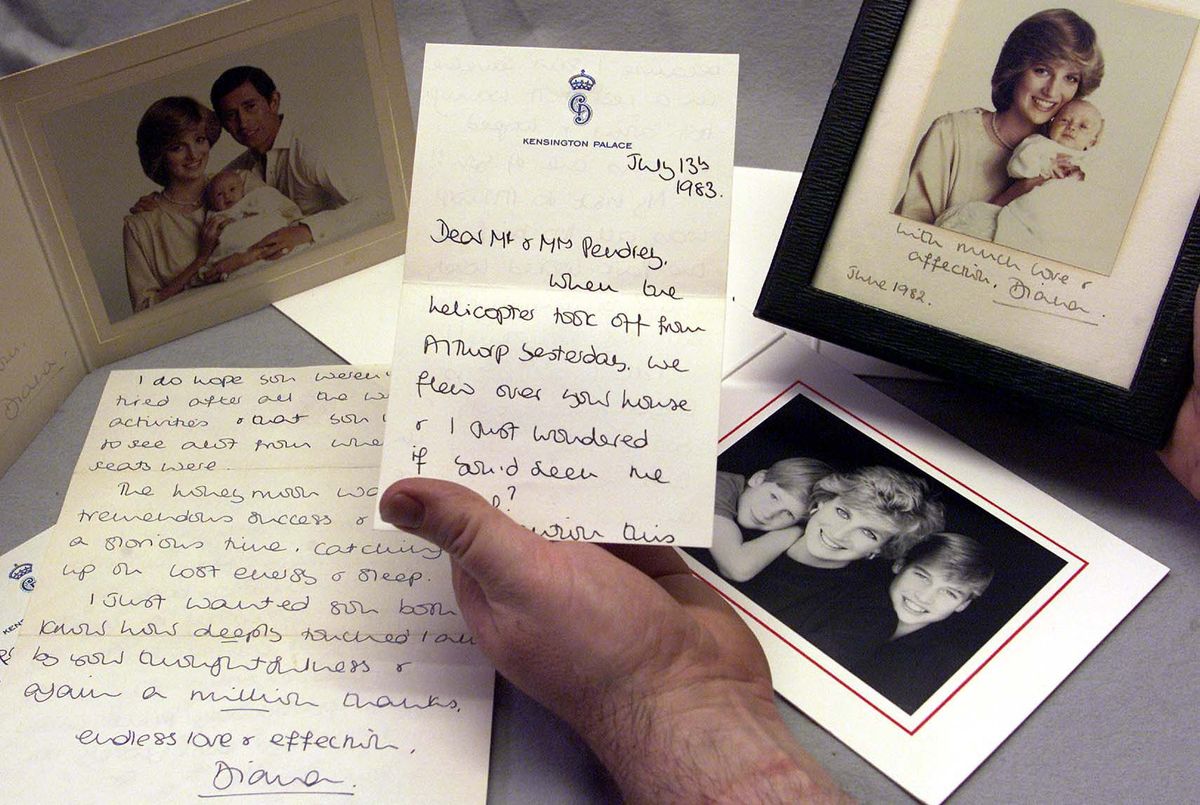 KENSINGTON PALACE
July 13th
1983.
Dear Mr & Mrs Pendrey,
When the
helicopter took off from
Althorp yesterday, we
flew over your house
& I just wondered
if you'd seen me
?
mention this
with much love &
affection, Diana
June 1982.
Diana
I do hope you weren't
tired after all the
activities & that you
to see alot from
seats were.
The honeymoon
tremendous success &
a glorious time, catching
up on lost energy & sleep.
I just wanted you both
know how deeply touched I am
by your thoughtfulness &
again a million thanks.
endless love & affection,
Diana.